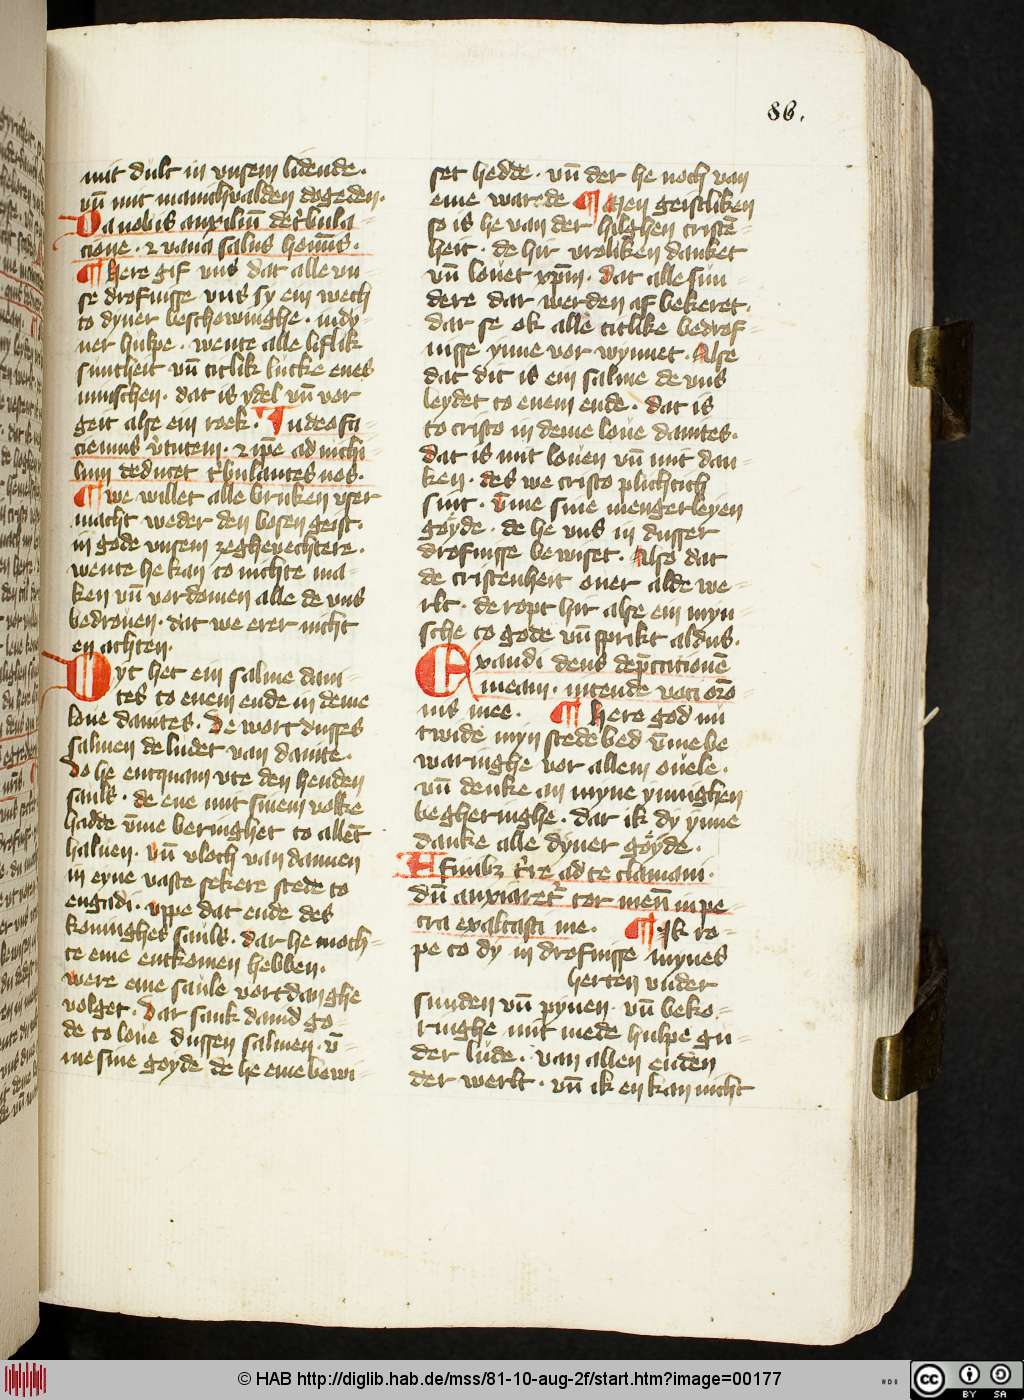 86.
mit dult in vnsem lidende.
vn̄ mit manichvalden dogeden.
Da nobis auxiliū de t'bula-
cione. ⁊ vana salus homīs.
¶ Here gif vns dat alle vn-
se drofnisse vns sy ein wech
to dyner beschowinghe. in dy-
ner hulpe. wente alle liflik
suntheit vn̄ titlik lucke enes
minschen. dat is ydel vn̄ vor
geit alse ein roek. In deo fa
ciemus v'tutem. ⁊ ip̄e ad nichi
lum deducet t'bulantes nos.
¶ we willet alle bruken vser
macht weder den bosen geist.
in gode vnsem zeghevechtere.
wente he kan to nichte ma-
ken vn̄ vordomen alle de vns
bedrouen. dat we erer nicht
en achten.
Dyt het ein salme daui-
tes to enem ende in deme
loue dauites. De wort dusses
salmen de ludet van dauite.
Do he entquam vte den henden
sauls. de ene mit sinem volke
hadde v̄me beringhet to allen̄
haluen. vn̄ vloch van dannen
in eyne vaste sekere stede to
engadi. vppe dat ende des
koninghes sauls. dar he moch-
te eme entkomen hebben.
were eme saule vortdanghe
volget. Dar sank dauid go-
de to loue dussen salmen. v̄-
me sine goyde de he eme bewi-
set hedde. vn̄ der he noch van
eme warede ¶ Men geistliken
so is he van der hilghen cristē-
heit. de hir vroliken danket
vn̄ louet xp̄m. dat alle sun-
dere dar werden af bekeret.
dar se ok alle titlike bedrof-
nisse ynne vor wynnet. Alse
dat dit is ein salme de vns
leydet to enem ende. dat is
to cristo in deme loue dauites.
dat is mit louen vn̄ mit dan-
ken. des we cristo plichtich
sint. v̄me sine mengerleyen
goyde. de he vns in dusser
drofnisse bewiset. Also dat
de cristenheit ouer alde we-
rlt. de ropt hir alse ein myn-
sche to gode vn̄ sprikt aldus.
Exaudi deus dep̄cationē
meam. intende voci orō-
nis mee. ¶ Here god nu
twide myn stede bed v̄me be
waringhe vor allem ouele.
vn̄ denke an myne ynnighen
begheringhe. dar ik dy ynne
danke alle dyner goyde.
A finibꝫ t're ad te clamaui.
dū anxiaret' cor meū in pe-
tra exaltasti me. ¶ Ik ro-
pe to dy in drofnisse mynes
herten vnder
sunden vn̄ pynen. vn̄ beko-
ringhe mit mede hulpe gu-
der lude. van allen enden
der werlt. vn̄ ik en kan nicht
© HAB http://diglib.hab.de/mss/81-10-aug-2f/start.htm?image=00177
HAB
cc BY SA